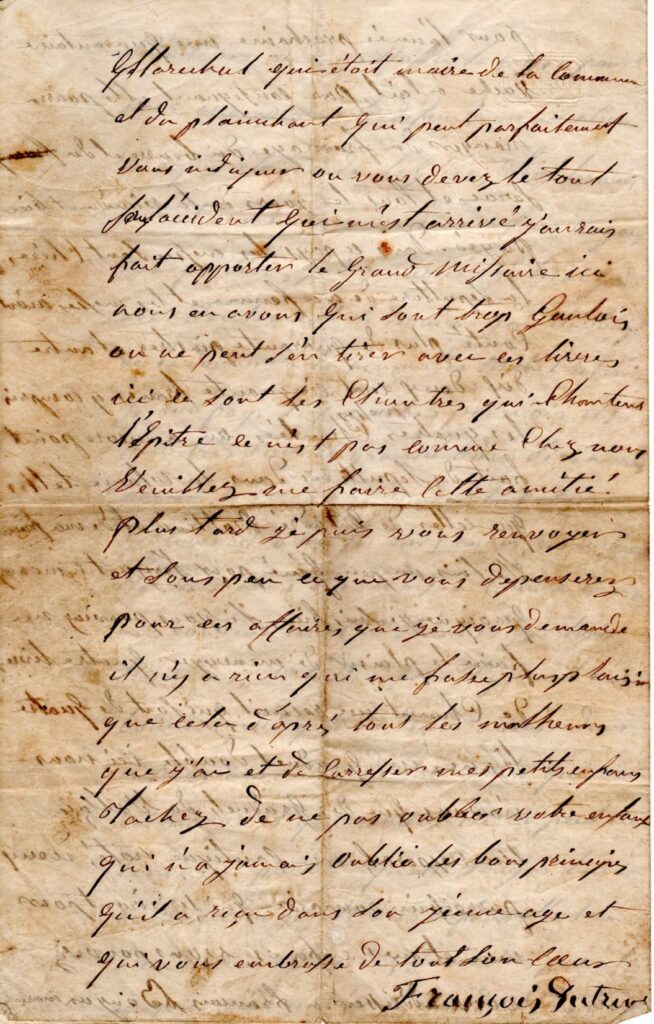 Marechal qui étoit maire de la Commune
et du plainchant qui peut parfaitement
vous indiquer ou vous devez le tout
l'accident qui m'est arrivé j'aurais
fait apporter le Grand Missaire ici
nous en avons qui sont trop Gaulois
on ne peut s'en tirer avec ces livres
ici ce sont les Chantres qui Chantent
l'Epitre ce n'est pas comme Chez nous
Veuillez me faire cette amitié
plus tard je puis vous renvoyer
et sous peu ce que vous depenserez
pour ces affaires que je vous demande
il n'y a rien qui me fasse plus plaisir
que cela d'après tout les malheurs
que j'ai et de Carresser mes petits enfans
Tachez de ne pas oublier votre enfant
qui n'a jamais oublié les bons principes
qu'il a reçu dans son jeune age et
qui vous embrasse de tout son Coeur
François